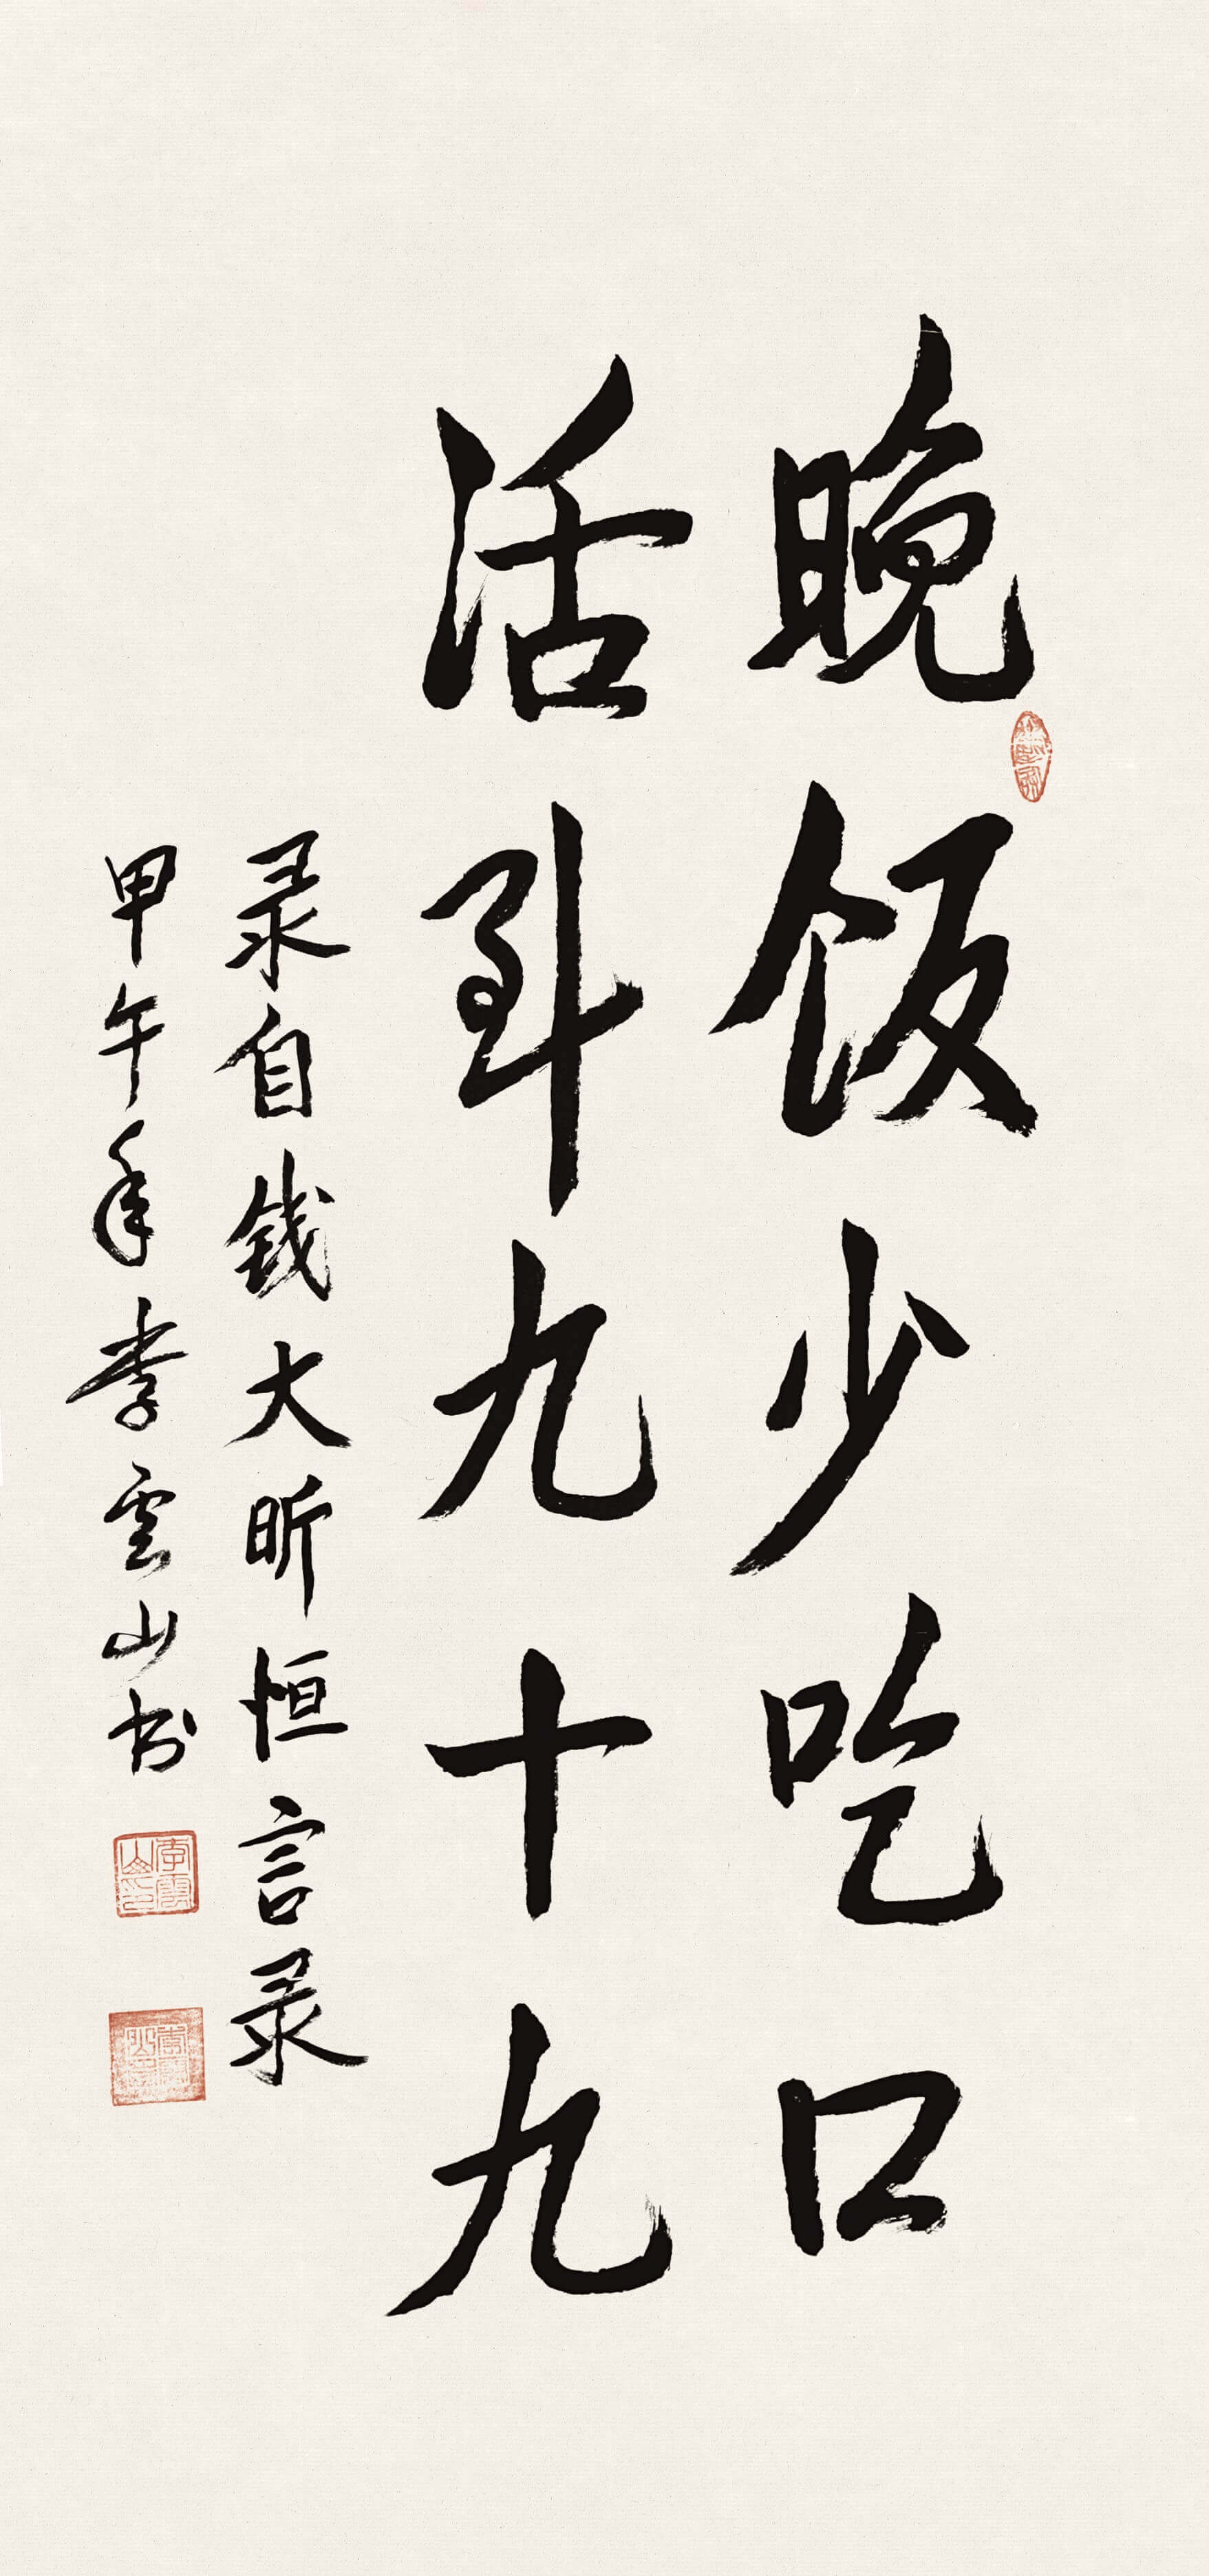 晚饭少吃口
活到九十九
录自钱大昕恒言录
甲午年李雲山书
李雲山印